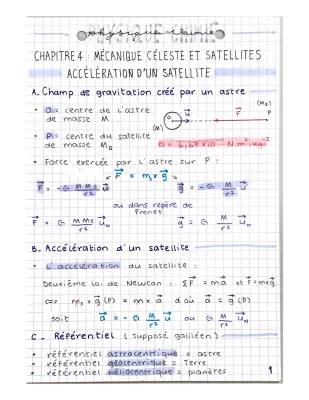 PHYSIQUE CHIMIE
CHAPITRE 4 : MÉCANIQUE CÉLESTE ET SATELLITES
ACCÉLÉRATION D'UN SATELLITE
A. Champ de gravitation créé par un astre
• O = centre de l'astre
de masse M
• P = centre du satellite
de masse Ms
(M) O u⃗ F⃗ P (Ms)
G = 6,67 × 10⁻¹¹ N.m².kg⁻²
• Force exercée par l'astre sur P :
F⃗ = ms × g⃗
F⃗ = - G M Ms / r² u⃗ g⃗ = - G M / r² u⃗
ou dans repère de
Frenet
F⃗ = G M Ms / r² u⃗N g⃗ = G M / r² u⃗N
B. Accélération d'un satellite
• L'accélération du satellite :
Deuxième loi de Newton : ΣF⃗ = ma⃗ et F⃗ = mxg⃗
<=> ms × g⃗ (P) = m × a⃗ d'où a⃗ = g⃗ (P)
soit a⃗ = - G M / r² u⃗ ou G M / r² u⃗N
C. Référentiel (supposé galiléen)
• référentiel astrocentrique = astre
• référentiel géocentrique = Terre
• référentiel héliocentrique = planètes
1